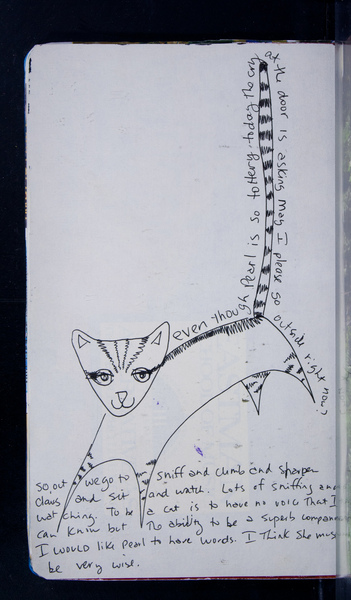 even though Pearl is so tottery today the cry
at the door is asking may I please go outside right now?
So, out we go to sniff and climb and sharpen
claws and sit and watch. Lots of sniffing and
watching. To be a cat is to have no voice that I
can know but the ability to be a superb
I would like Pearl to have words. I think she
be very wise.